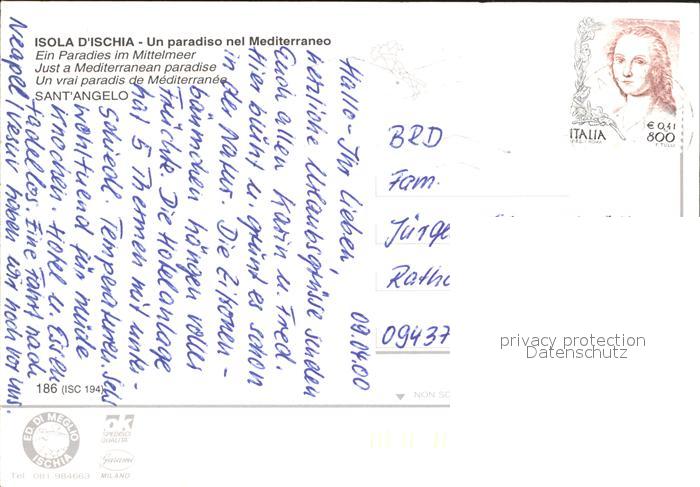 ISOLA D'ISCHIA - Un paradiso nel Mediterraneo
Ein Paradies im Mittelmeer
Just a Mediterranean paradise
Un vrai paradis de Méditerranée
SANT'ANGELO
09.04.00
Hallo - Ihr Lieben,
herzliche Urlaubsgrüsse senden
Euch allen Karin u. Fred.
Hier blüht u. grünt es schon
in der Natur. Die Zitronen-
bäumchen hängen voller
Früchte. Die Hotelanlage
hat 5 Thermen mit unter-
schiedl. Temperaturen. Sehr
wohltuend für müde
Knochen. Hotel u. Essen
tadellos. Eine Fahrt nach
Neapel/Vesuv haben wir noch vor uns.
BRD
Fam.
Jürge
Ratho
09437
ITALIA
€ 0,41
800
privacy protection
Datenschutz
186 (ISC 194)
NON SC
ED. DI MEGLIO
ISCHIA
Tel. 081.984663
OK
QUALITÀ
Garami
MILANO